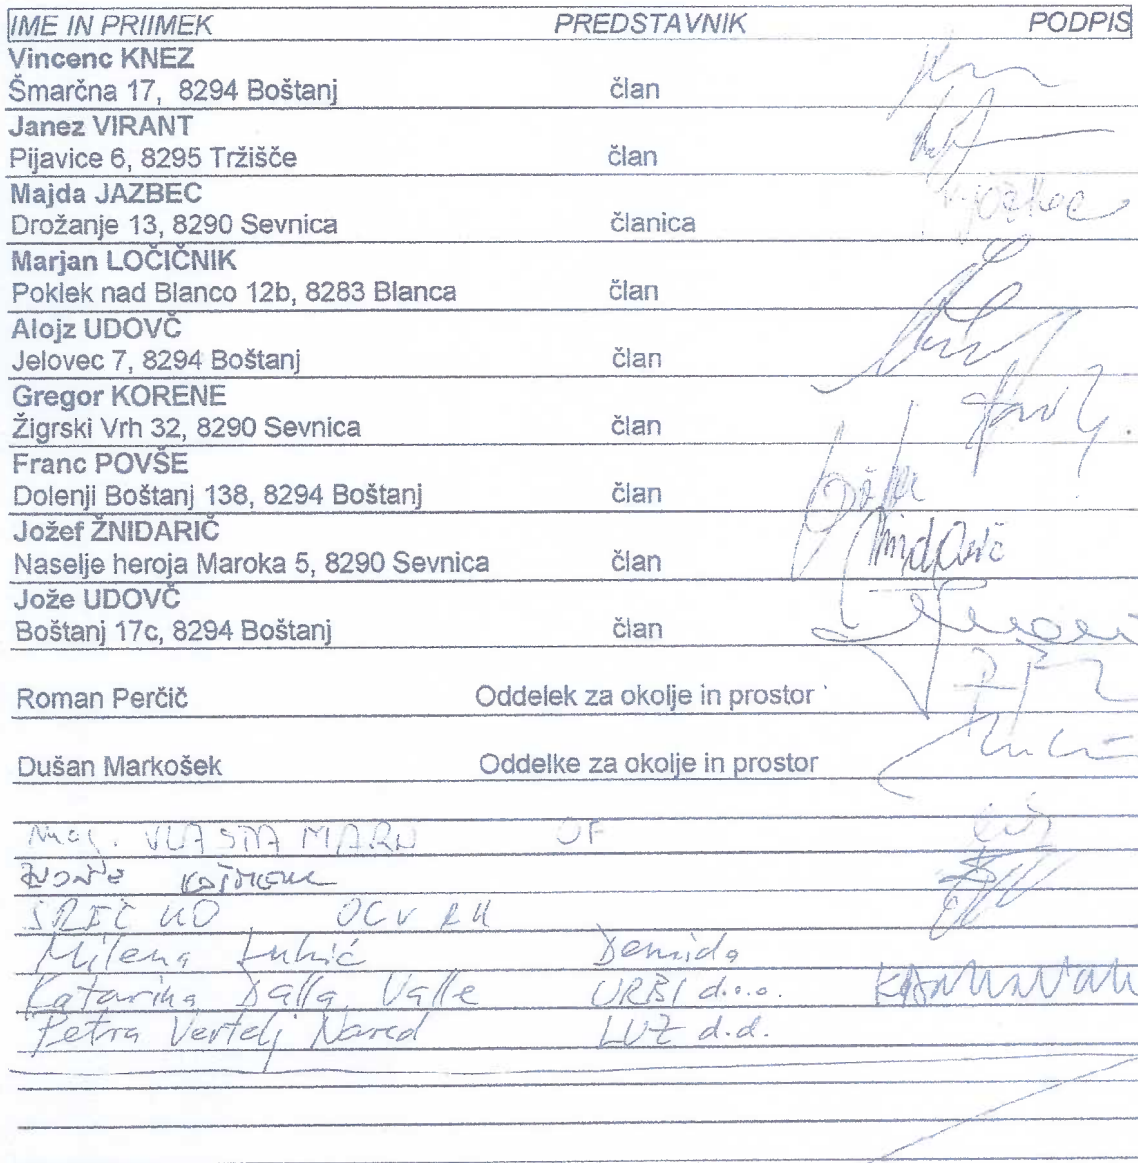 IME IN PRIIMEK PREDSTAVNIK PODPIS
Vincenc KNEZ
Šmarčna 17, 8294 Boštanj član
Janez VIRANT
Pijavice 6, 8295 Tržišče član
Majda JAZBEC
Drožanje 13, 8290 Sevnica članica
Marjan LOČIČNIK
Poklek nad Blanco 12b, 8283 Blanca član
Alojz UDOVČ
Jelovec 7, 8294 Boštanj član
Gregor KORENE
Žigrski Vrh 32, 8290 Sevnica član
Franc POVŠE
Dolenji Boštanj 138, 8294 Boštanj član
Jožef ŽNIDARIČ
Naselje heroja Maroka 5, 8290 Sevnica član
Jože UDOVČ
Boštanj 17c, 8294 Boštanj član
Roman Perčič Oddelek za okolje in prostor
Dušan Markošek Oddelke za okolje in prostor
mag. VLASTA MARN OF
SREČKO OCVRK
Milena
Katarina Dalla Valle URBI d.o.o.
Petra Vertelj Nared LUZ d.d.